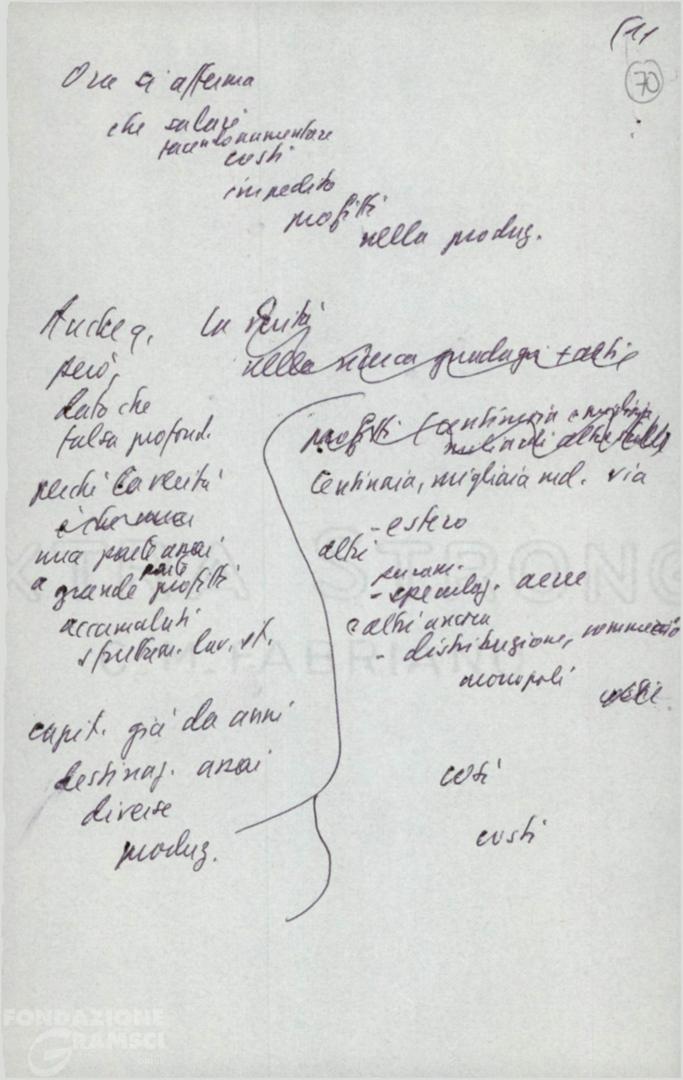 (11
70
Ora si afferma
che salari
facendo aumentare
costi
impedito
profitti
nella produz.
Anche q.
però,
dato che
falsa profond.
perché la verità
è che
una parte anzi
parte
a grande profitti
accumulati
sfruttam. lav. st.
capit. già da anni
destinaz. anzi
diverse
produz.
la verità
nella guadagni + alti
profitti (centinaia e migliaia
miliardi
Centinaia, migliaia md. via
- estero
altri
- speculaz. aree
e altri ancora
- distribuzione, commercio
monopoli
così
costi
EXTRA STRONG
C. M. FABRIANO
FONDAZIONE
GRAMSCI